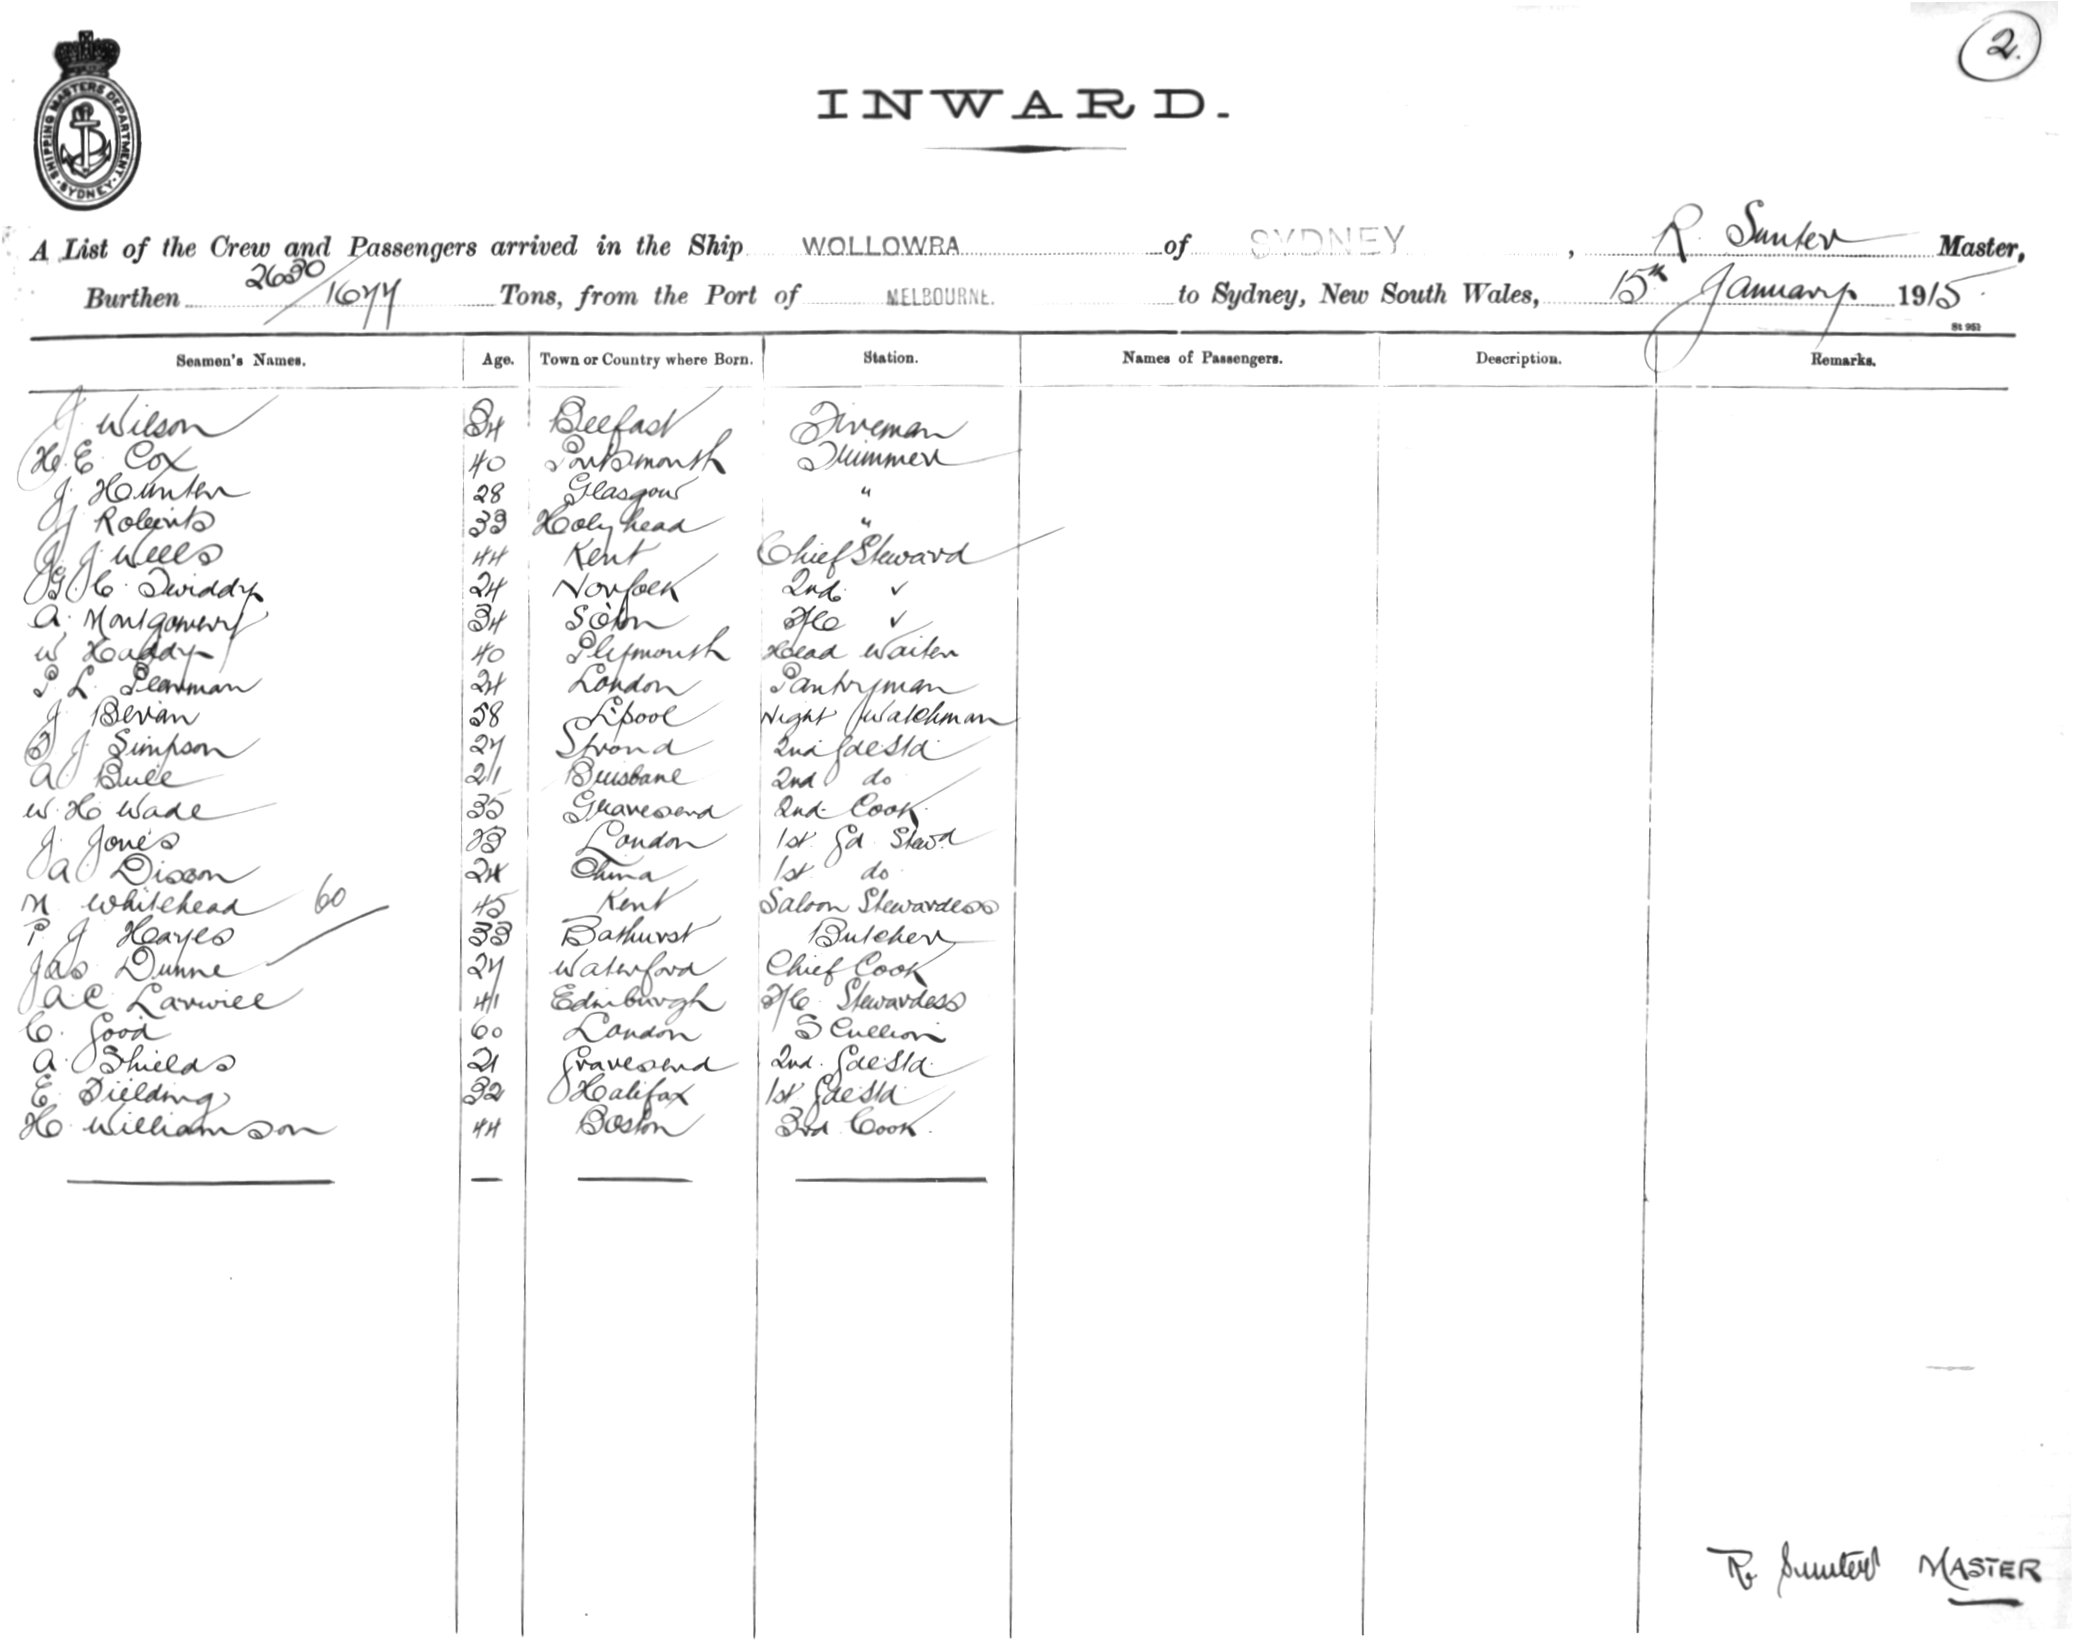 2.
SHIPPING MASTERS DEPARTMENT. SYDNEY
INWARD.
A List of the Crew and Passengers arrived in the Ship WOLLOWRA of SYDNEY, R. Sunter Master,
Burthen 2630/1677 Tons, from the Port of MELBOURNE. to Sydney, New South Wales, 15th January 1915.
St 952
Seamen's Names. Age. Town or Country where Born. Station. Names of Passengers. Description. Remarks.
J Wilson 34 Belfast Fireman
H. E. Cox 40 Portsmouth Trimmer
J. Hunter 28 Glasgow "
J Roberts 33 Holyhead "
J. J. Wells 44 Kent Chief Steward
G. C. Twiddy 24 Norfolk 2nd. ✓
A. Montgomery 34 Soton F/C ✓
W Haddy 40 Plymouth Head Waiter
P. L. Pearman 24 London Pantryman
J Bevan 58 L'pool Night Watchman
J Simpson 27 Strond 2nd Gde Std
A Bull 21 Brisbane 2nd do
W. H. Wade 35 Gravesend 2nd Cook.
J. Jones 23 London 1st Gd. Stewd
A Dixon 24 China 1st do
M Whitehead 60 45 Kent Saloon Stewardess
P J Hayes 33 Bathurst Butcher
Jas Dunne 27 Waterford Chief Cook
A. C. Larwill 41 Edinburgh F/C Stewardess
C. Good 60 London Scullion
A. Shields 21 Gravesend 2nd. Gde Std.
E. Fielding 32 Halifax 1st Gde Std
H. Williamson 44 Boston 3rd Cook.
R. Sunter MASTER